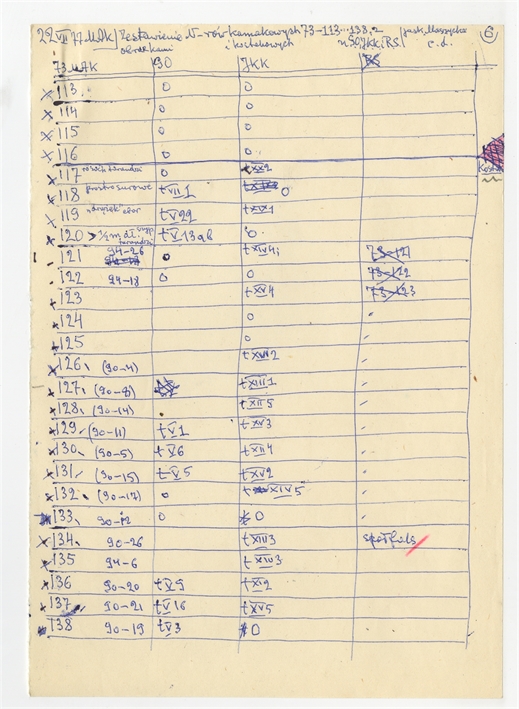 25 VII 77 MAK / Zestawienie N-rów kamakowych 73-113...133,2 / jask. Maszycka 6
obrazkami i kostkowych n SO, JKK, i RS. / c.d.
73 MAK 90 JKK
x 113 0 0
x 114 0 0
x 115 0 0
x 116 0 0
x 117 0 t XX 2
x 118 prostrosurowe t VII 1 0
x 119 t V 29 t XX 1
x 120 > 1/2 m dł. t V 13a8 0
x 121 94-26 0 t XIV 4 73-121
x 122 94-18 0 0 73-122
x 123 t XV 4 73-123
x 124 0
x 125 0
x 126. (90-4) t XVII 2
x 127. (90-8) t XIII 1
x 128. (90-14) t XII 5
x 129. (90-11) t V 1 t XV 3
x 130. (90-5) t V 6 t XII 4
x 131. (90-15) t V 5 t XV 2
x 132. (90-17) 0 t XIV 5
x 133. 90-12 0 0
x 134. 90-26 t XIII 3
x 135 94-6 t XIV 3
x 136 90-20 t V 9 t XI 2
x 137. 90-21 t V 16 t XV 5
x 138 90-19 t V 3 0